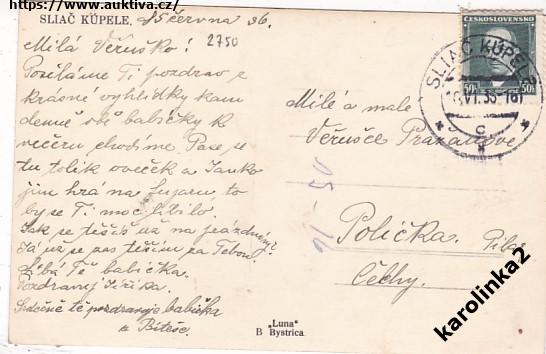 https://www.auktiva.cz/
SLIAČ KÚPELE, 15 června 36.
2750
Milá Věrusko!
Posíláme Ti pozdrav z
krásné vyhlídky kam
denně s babičky k
večeru chodíme. Pase se
tu tolik oveček a Janko
jim hrá na fujaru to
by se Ti moc líbilo.
Jak se těšíš už na prázdniny?
Já už se zas těším za Tebou.
Líbá Tě babička.
Pozdravuj Jiříka.
Srdečně tě pozdravuje babička
z Bíteše.
ČESKOSLOVENSKO
50h 50h
SLIAČ KÚPELE
VI. 36
* C *
Milé a malé
Věrušce
Polička.
Čechy.
"Luna"
B Bystrica.
karolinka2